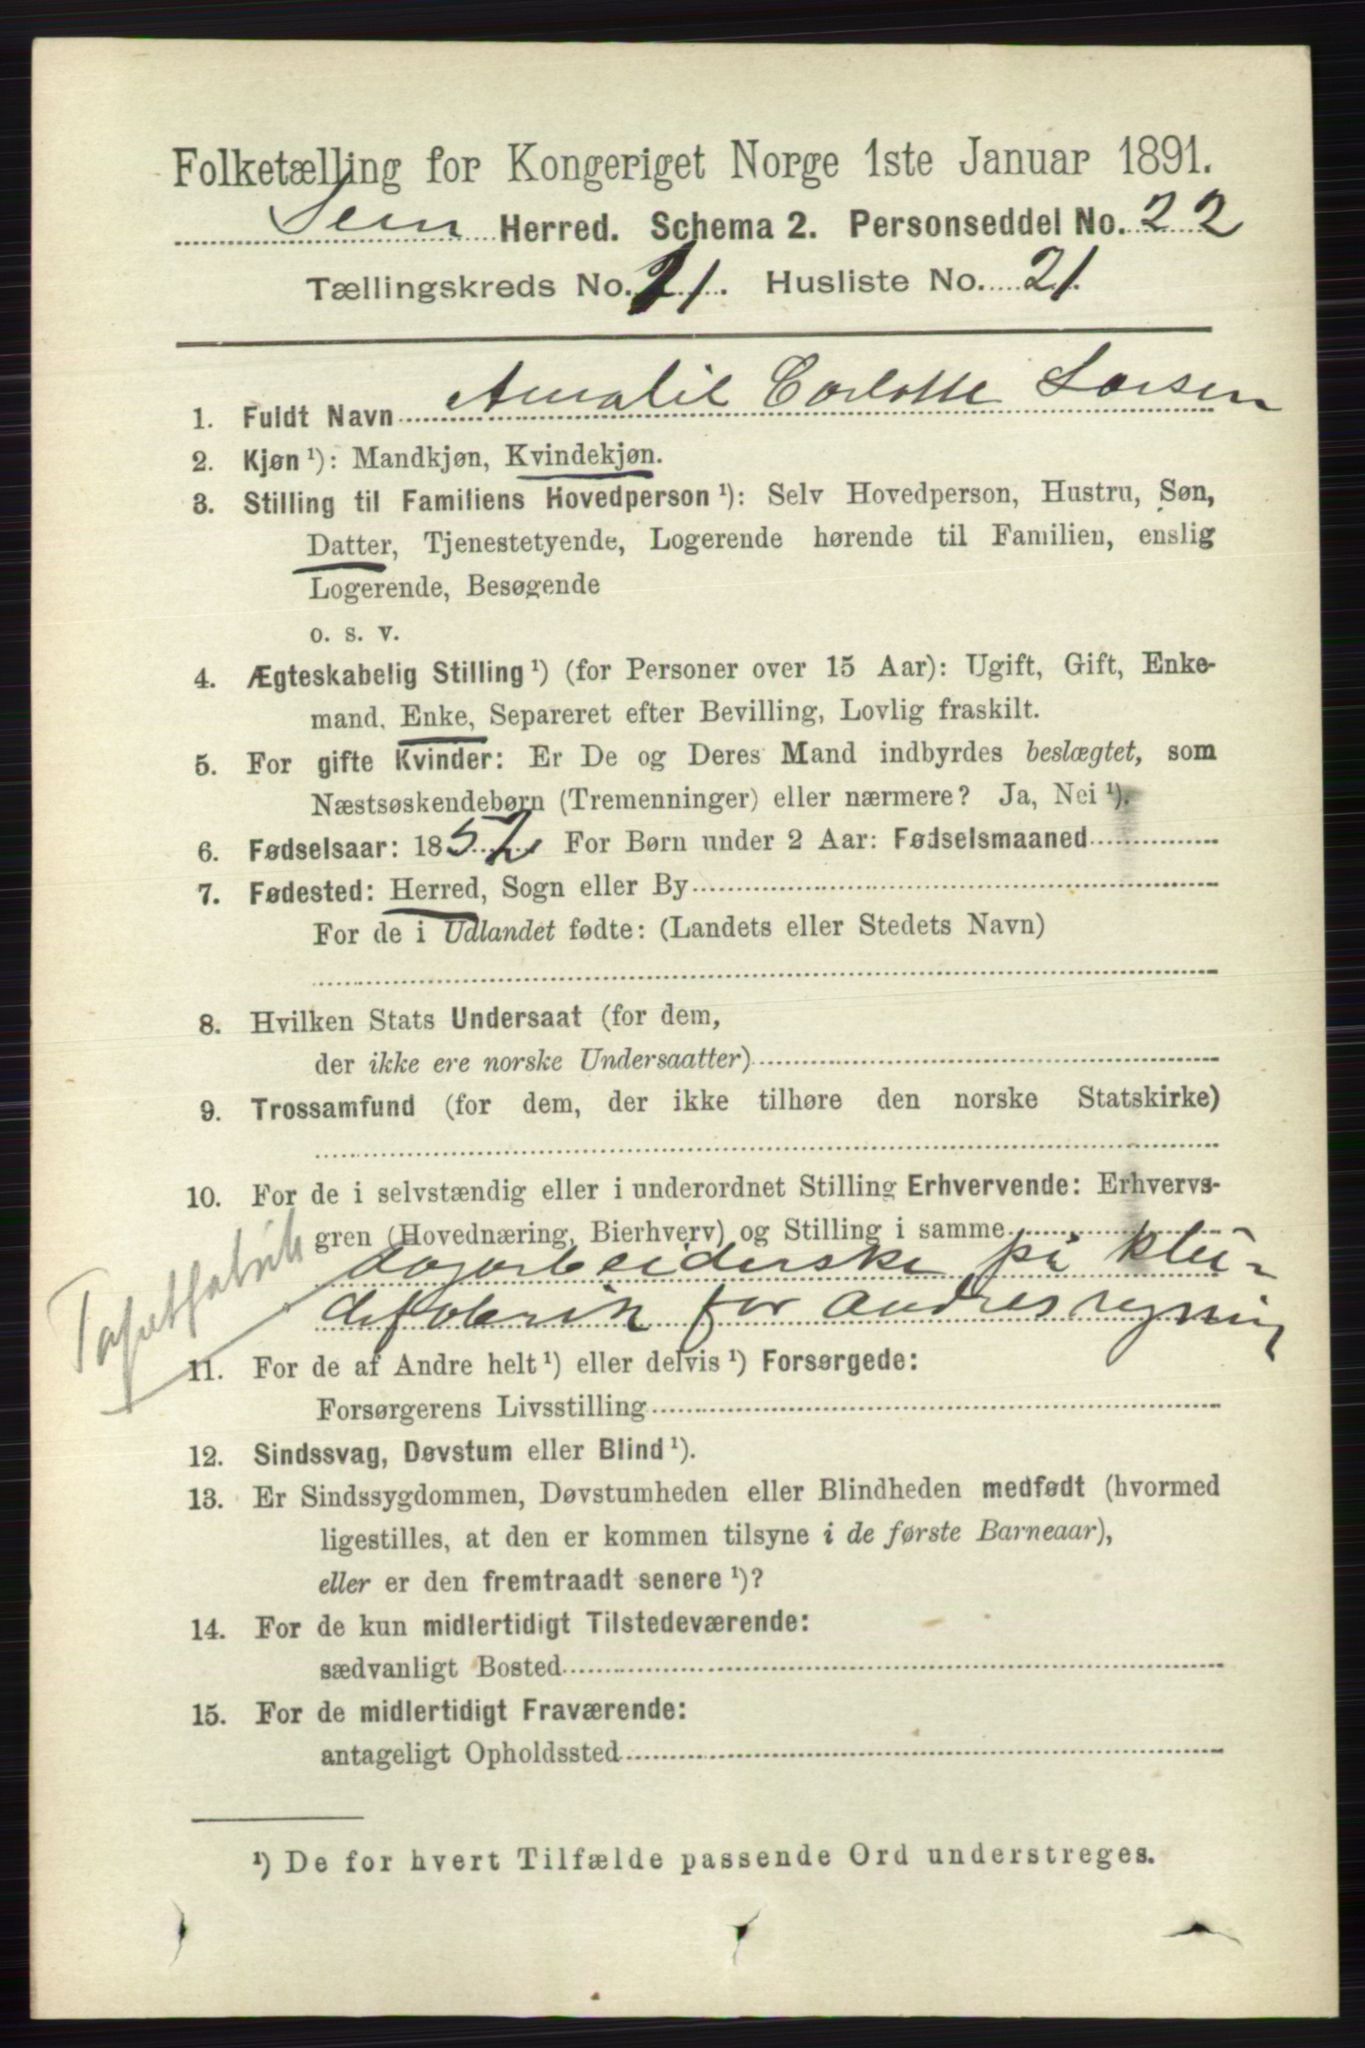 Folketælling for Kongeriget Norge 1ste Januar 1891.
Sem Herred. Schema 2. Personseddel No. 22
Tællingskreds No. 11. Husliste No. 21.
1. Fuldt Navn Amalie Carlotte Larsen
2. Kjøn ¹): Mandkjøn, Kvindekjøn.
3. Stilling til Familiens Hovedperson ¹): Selv Hovedperson, Hustru, Søn,
Datter, Tjenestetyende, Logerende hørende til Familien, enslig
Logerende, Besøgende
o. s. v.
4. Ægteskabelig Stilling ¹) (for Personer over 15 Aar): Ugift, Gift, Enke-
mand, Enke, Separeret efter Bevilling, Lovlig fraskilt.
5. For gifte Kvinder: Er De og Deres Mand indbyrdes beslægtet, som
Næstsøskendebørn (Tremenninger) eller nærmere? Ja, Nei ¹).
6. Fødselsaar: 1852 For Børn under 2 Aar: Fødselsmaaned
7. Fødested: Herred, Sogn eller By
For de i Udlandet fødte: (Landets eller Stedets Navn)
8. Hvilken Stats Undersaat (for dem,
der ikke ere norske Undersaatter)
9. Trossamfund (for dem, der ikke tilhøre den norske Statskirke)
10. For de i selvstændig eller i underordnet Stilling Erhvervende: Erhvervs-
gren (Hovednæring, Bierhverv) og Stilling i samme
Tapetfabrik
dagarbeiderske på klu-
defabrik for andres regning
11. For de af Andre helt ¹) eller delvis ¹) Forsørgede:
Forsørgerens Livsstilling
12. Sindssvag, Døvstum eller Blind ¹).
13. Er Sindssygdommen, Døvstumheden eller Blindheden medfødt (hvormed
ligestilles, at den er kommen tilsyne i de første Barneaar),
eller er den fremtraadt senere ¹)?
14. For de kun midlertidigt Tilstedeværende:
sædvanligt Bosted
15. For de midlertidigt Fraværende:
antageligt Opholdssted
¹) De for hvert Tilfælde passende Ord understreges.